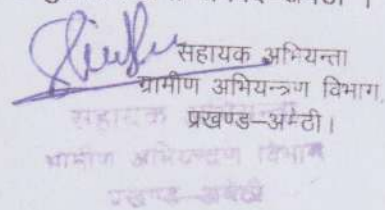 सहायक अभियन्ता
ग्रामीण अभियन्त्रण विभाग,
प्रखण्ड–अमेठी।
सहायक अभियन्ता
ग्रामीण अभियन्त्रण विभाग
प्रखण्ड-अमेठी